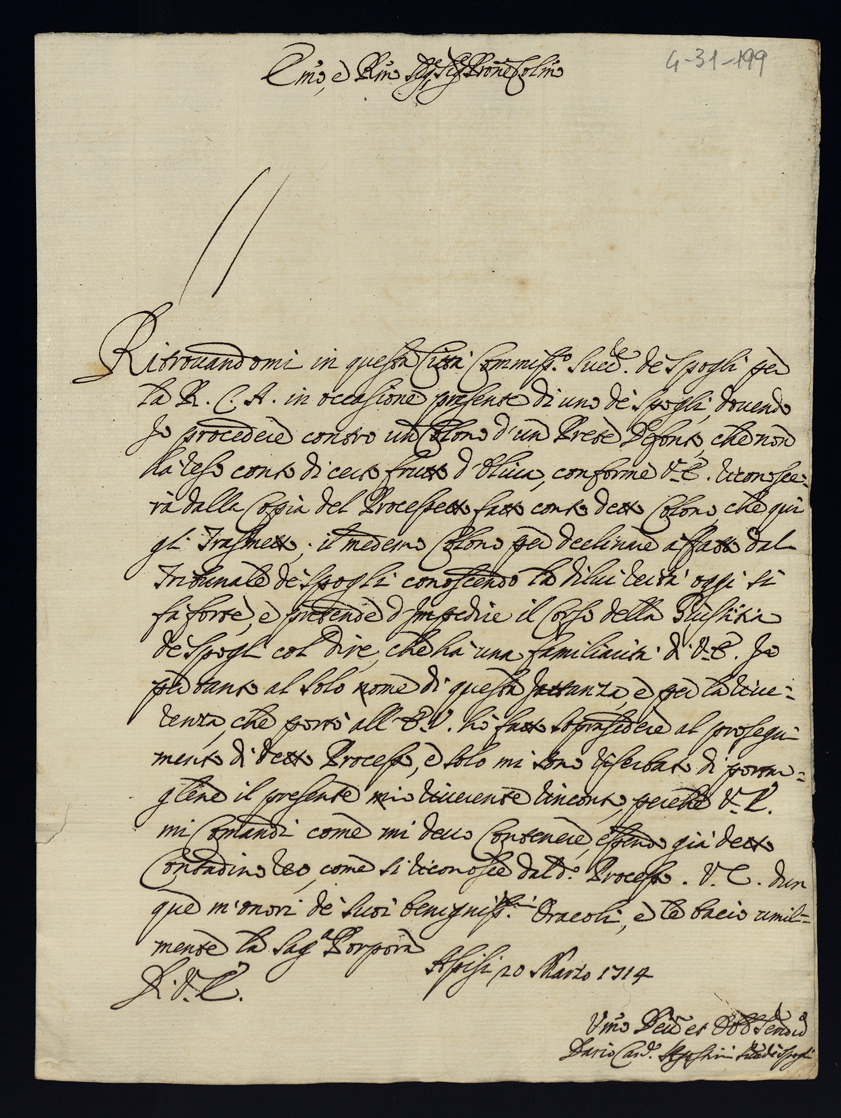 Em̃o, e Rm̃o Sig.r Sig.r Prone Colmo
4-31-199
Ritrovandomi in questa Città Commiss.o Succ.le de Spogli per
la R. C. A. in occasione presente di uno de Spogli, dovendo
Io procedere contro un Colono d'un Prete Defonto, che non
ha reso conto di certo frutto d'Oliva, conforme V. E. riconosce=
rà dalla Copia del Processetto fatto contro detto Colono, che qui
gli Trasmetto; il medemo Colono per declinare affatto dal
Tribunale de Spogli conoscendo la di lui reità oggi si
fa forte, e pretende d'Impedire il Corso della Giustitia
de Spogli col dire, che ha una familiarità di V. E. Io
per tanto al solo nome di questa Jattanza, e per la rive=
renza, che porto all'E. V. hò fatto soprasedere al prosegui
mento di detto Processo, e solo mi sono riserbato di porM=
gliene il presente mio riverente rincontro, perche V. E.
mi Comandi come mi devo Contenere, essendo già detto
Contadino reo, come si riconosce dal d.o Processo. V. E. dun
que m'onori de suoi benigniss.mi Oracoli, e le bacio umil=
mente la Sag.a Porpora
Di V. E. Assisi 20 Marzo 1714
Um̃o Dev.o et Obb. Servid.
Dario Card. Spogli